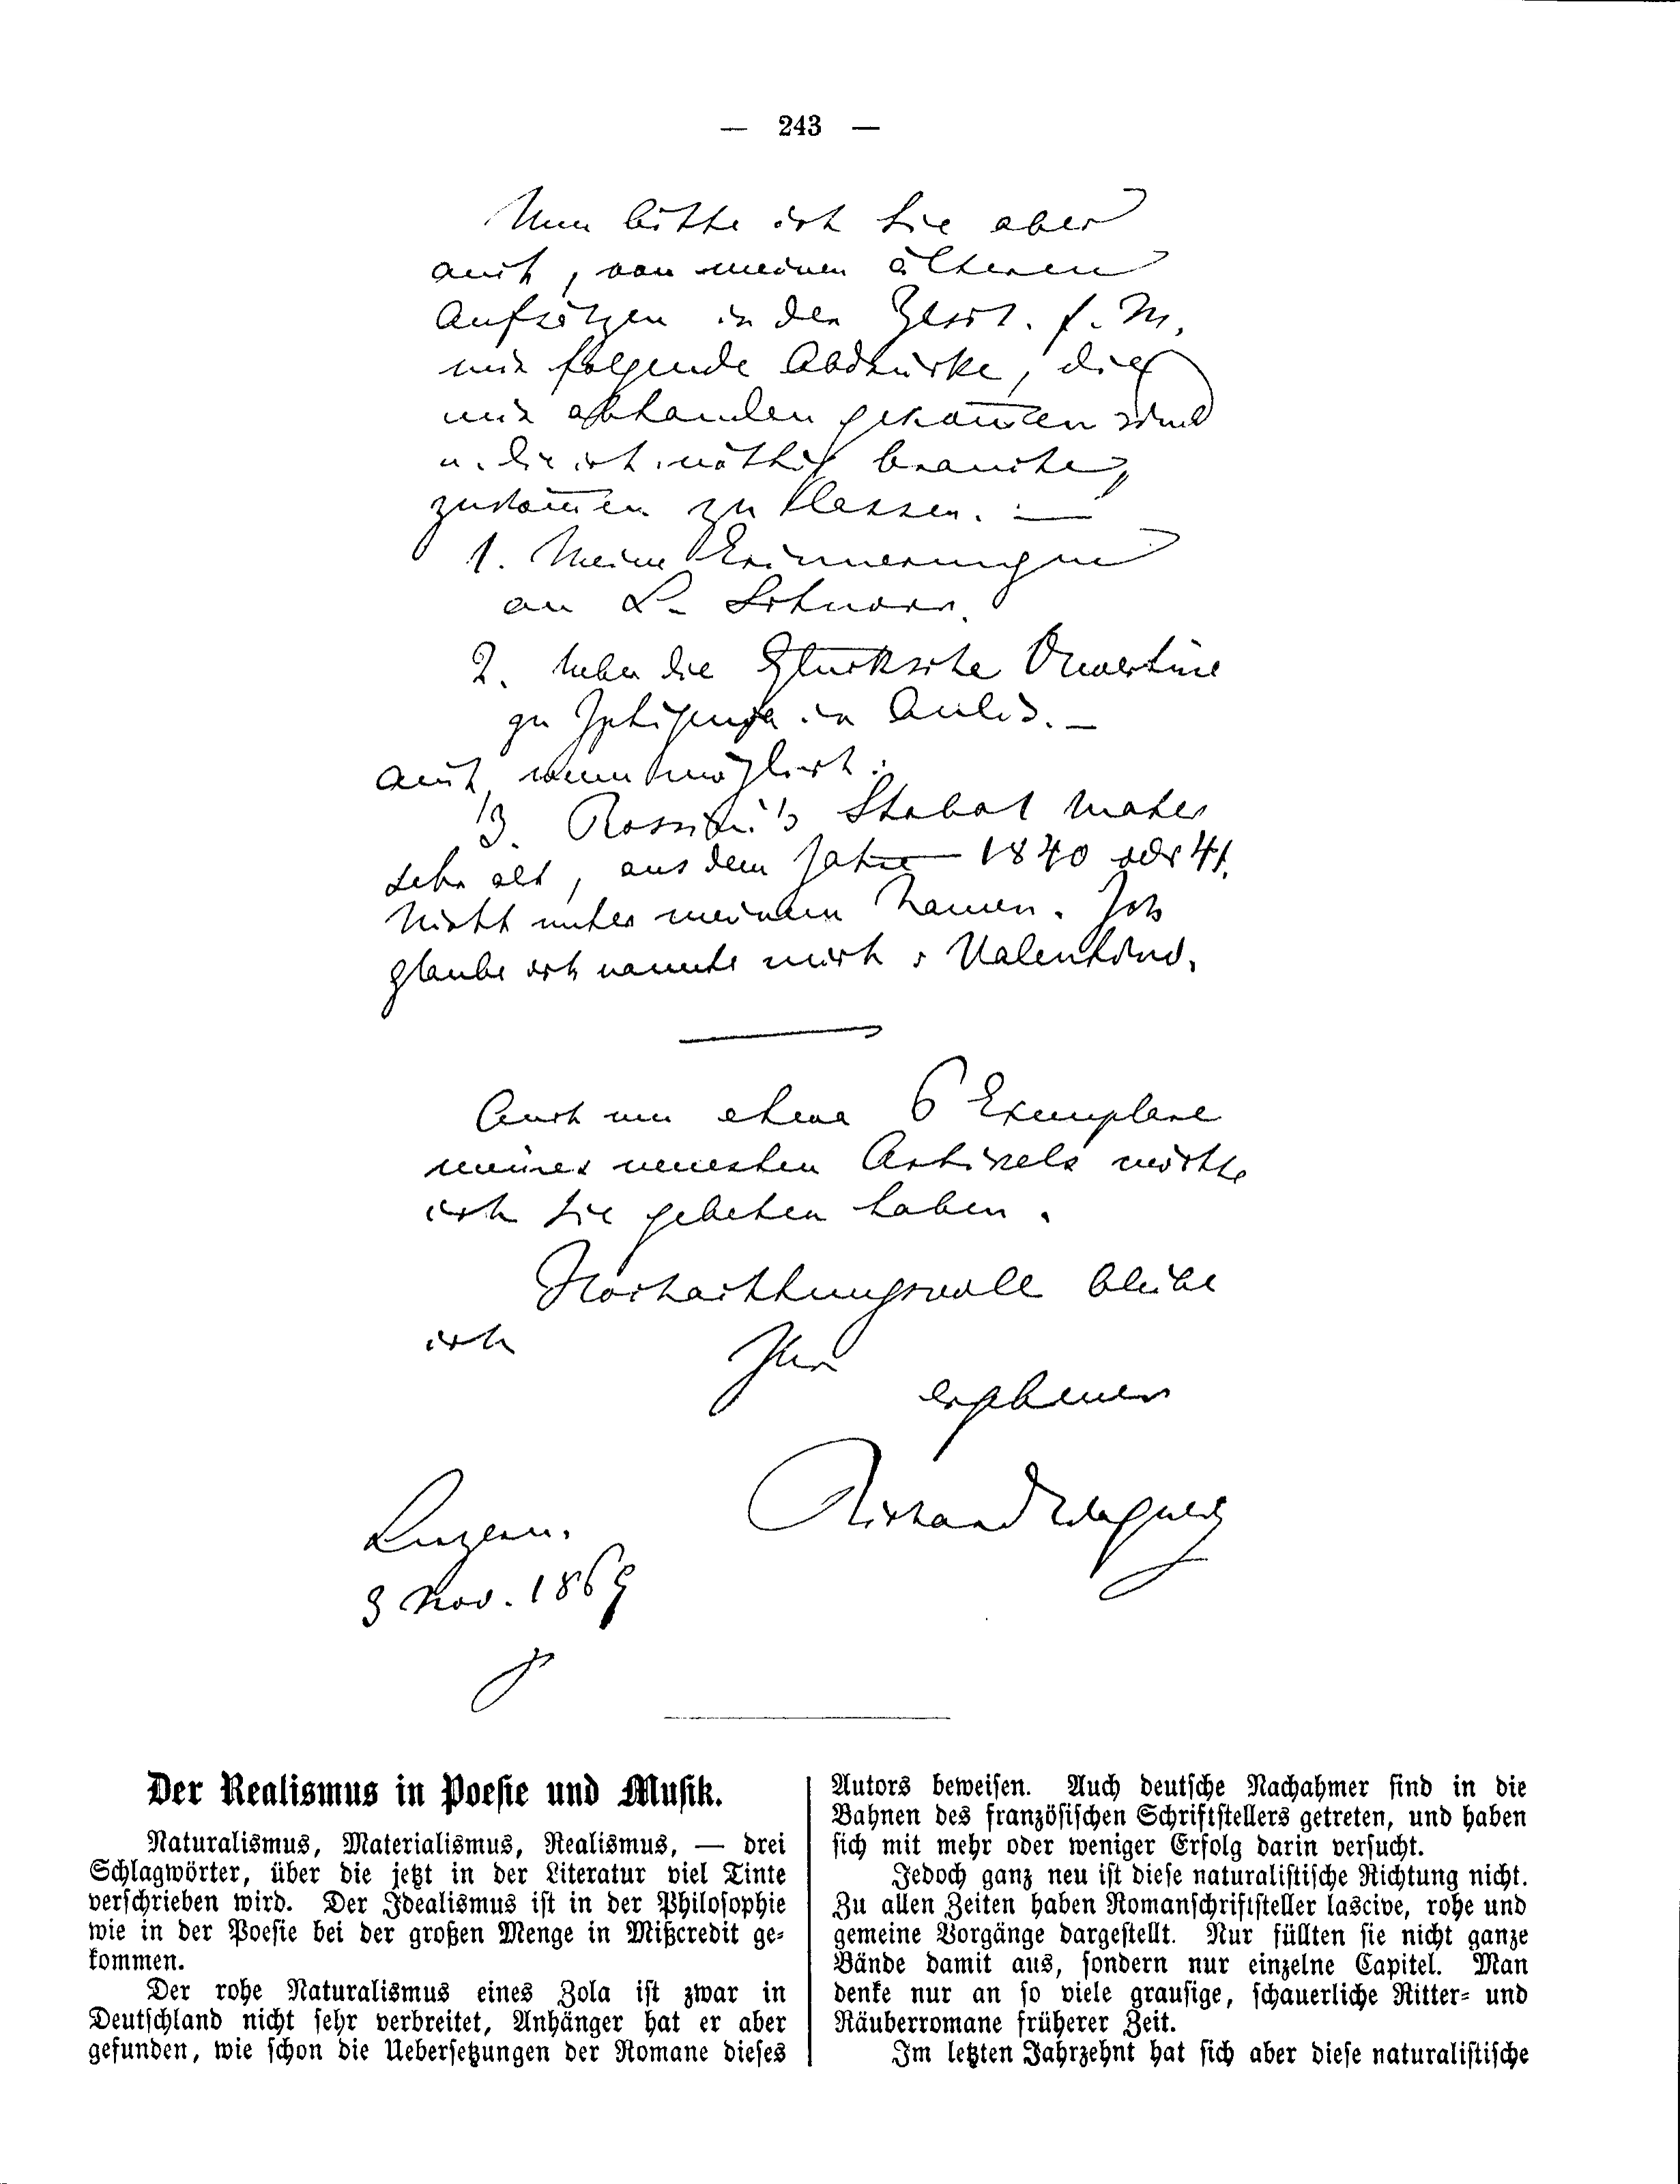 — 243 —
Nun bitte ich Sie aber
auch, von meinen älteren
Aufsätzen in der Ztschr. f. M.
mir folgende Abdrücke, die
mir abhanden gekom̅en sind
u. die ich nöthig brauche,
zukom̅en zu lassen. —
1. Meine Erinnerungen
an L. Schnorr.
2. Ueber die Glucksche Ouvertüre
zu Iphigenia in Aulis. —
auch, wenn möglich:
3. Rossini's Stabat mater
sehr alt, aus dem Jahre 1840 oder 41.
Nicht unter meinem Namen. Ich
glaube ich nannte mich: Valentino.
Auch um etwa 6 Exemplare
meines neuesten Artikels möchte
ich Sie gebeten haben.
Hochachtungsvoll bleibe
ich Ihr
ergebener
Richard Wagner
Luzern.
3 Nov. 1869
Der Realismus in Poesie und Musik.
Naturalismus, Materialismus, Realismus, — drei
Schlagwörter, über die jetzt in der Literatur viel Tinte
verschrieben wird. Der Idealismus ist in der Philosophie
wie in der Poesie bei der großen Menge in Mißcredit ge-
kommen.
Der rohe Naturalismus eines Zola ist zwar in
Deutschland nicht sehr verbreitet, Anhänger hat er aber
gefunden, wie schon die Uebersetzungen der Romane dieses
Autors beweisen. Auch deutsche Nachahmer sind in die
Bahnen des französischen Schriftstellers getreten, und haben
sich mit mehr oder weniger Erfolg darin versucht.
Jedoch ganz neu ist diese naturalistische Richtung nicht.
Zu allen Zeiten haben Romanschriftsteller lascive, rohe und
gemeine Vorgänge dargestellt. Nur füllten sie nicht ganze
Bände damit aus, sondern nur einzelne Capitel. Man
denke nur an so viele grausige, schauerliche Ritter- und
Räuberromane früherer Zeit.
Im letzten Jahrzehnt hat sich aber diese naturalistische